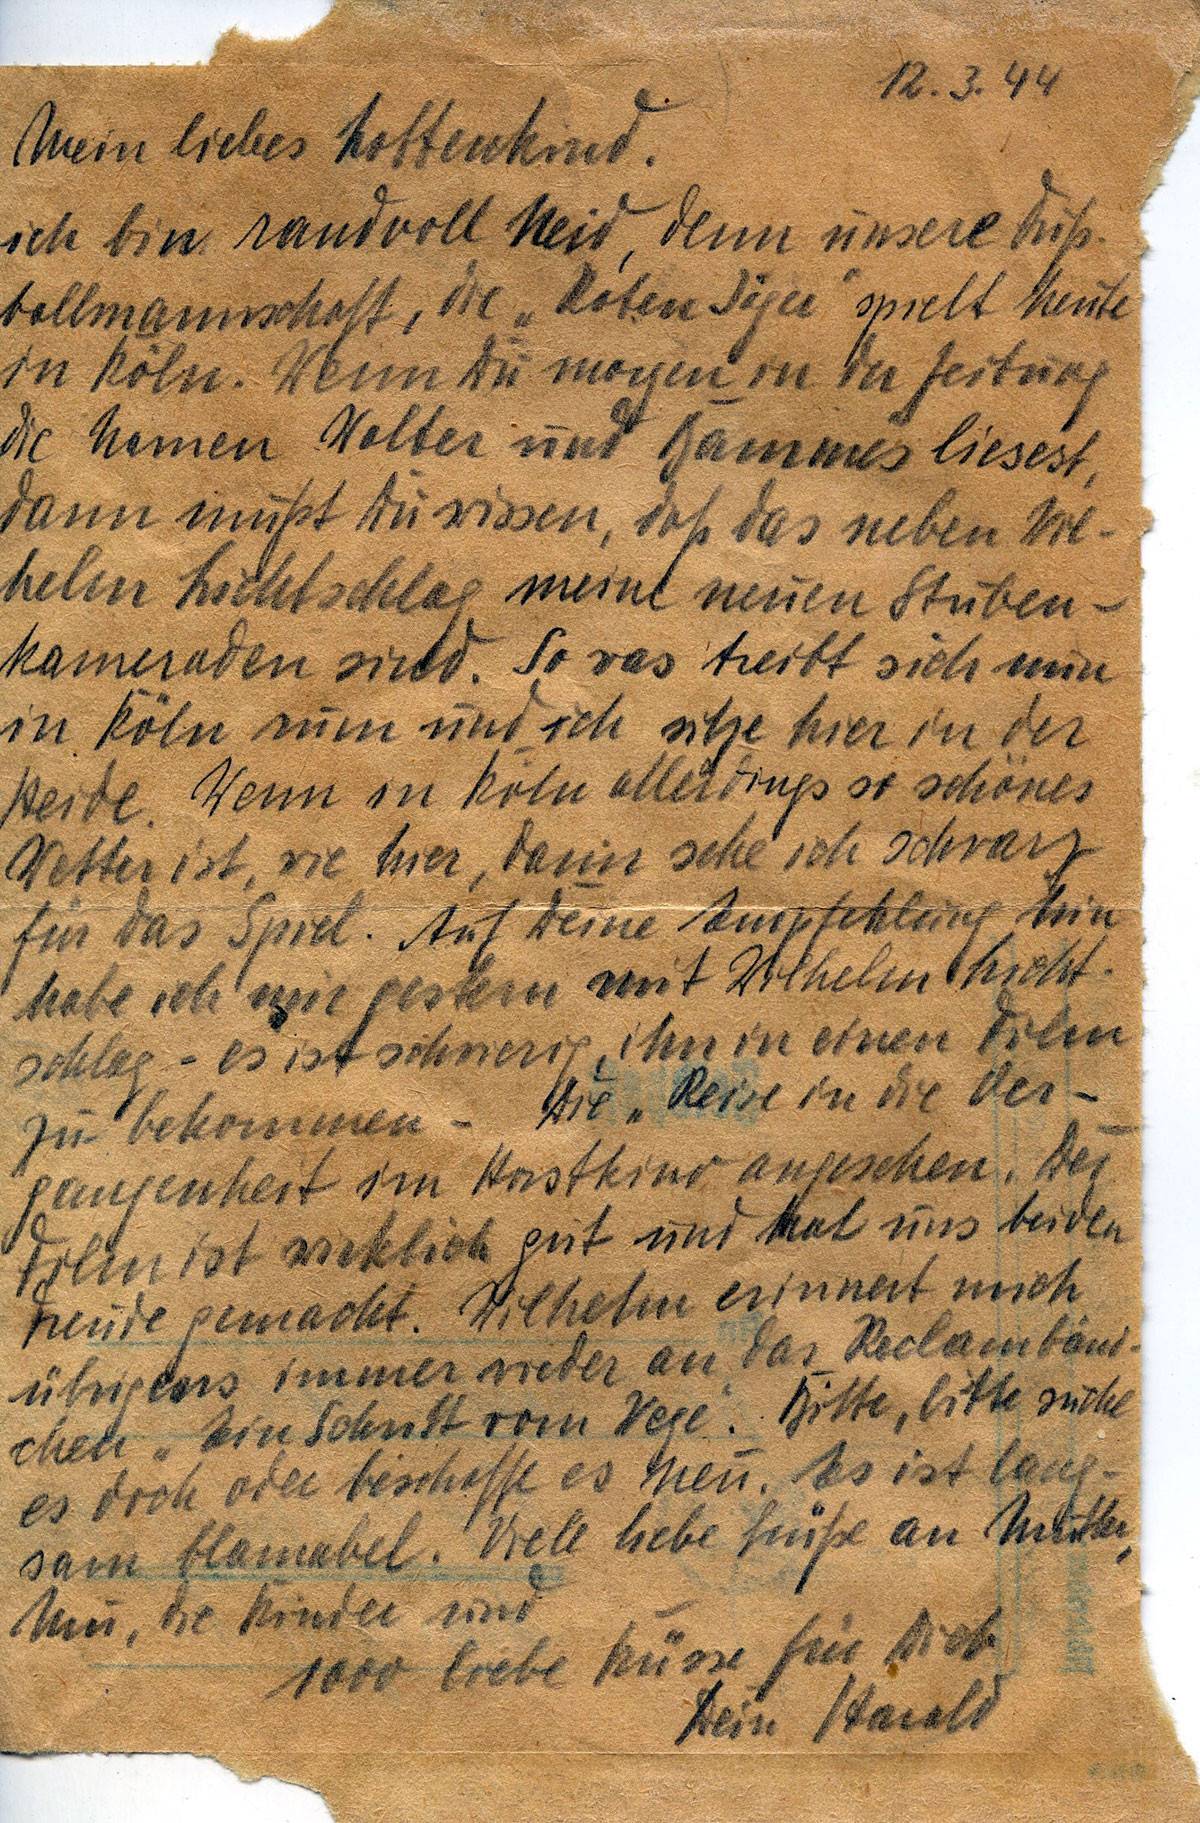 12.3.44
Mein liebes Lottenkind.
ich bin randvoll Neid, denn unsere Fuß-
ballmannschaft, die „Roten Jäger" spielt heute
in Köln. Wenn Du morgen in der Zeitung
die Namen Walter und Bammes liesest,
dann mußt Du wissen, daß das neben Wil-
helm Lichtschlag meine neuen Stuben-
kameraden sind. So was treibt sich nun
in Köln rum und ich sitze hier in der
Heide. Wenn in Köln allerdings so schönes
Wetter ist, wie hier, dann sehe ich schwarz
für das Spiel. Auf Deine Empfehlung hin
habe ich mir gestern mit Wilhelm Licht-
schlag – es ist schwierig, ihn in einen Film
zu bekommen – Die „Reise in die Ver-
gangenheit im Horstkino angesehen. Der
Film ist wirklich gut und hat uns beiden
Freude gemacht. Wilhelm erinnert mich
übrigens immer wieder an das Reclambänd-
chen „Ein Schritt vom Wege". Bitte, bitte suche
es doch oder beschaffe es neu. Es ist lang-
sam blamabel. Viele liebe Grüße an Mutter,
die Kinder und
1000 liebe Küsse für Dich
Dein Harald